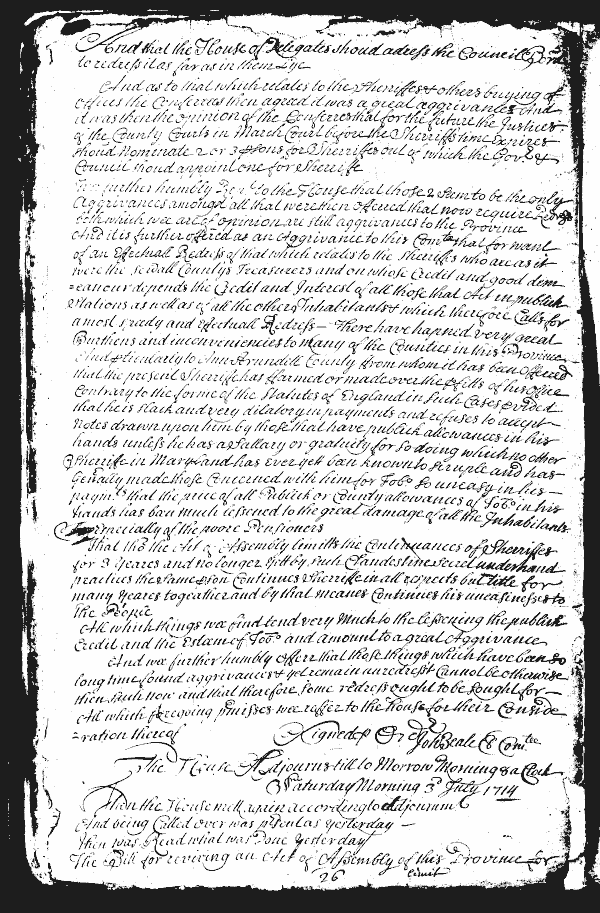 And that the House of Delegates shoud adress the Councill Board
to redress it as far as in them Lye
And as to that which relates to the Sheriffes & others buying of
offices the Conferrees then agreed it was a great aggrivance And
it was then the opinion of the Conferrees that for the future the Justices
of the County Courts in March Court before the Sherriffs time Expires
shoud Nominate 2 or 3 psons for Sherriffes out of which the Govr. &
Council shoud appoint one for Sherriffe
Wee further humbly to the House that those 2 seem to be the only
Aggrivances amongst all that were then offered that now require
both which wee are of opinion are still aggrivances to the Province
And it is further offered as an Aggrivance to this Comtee that for want
of an Effectuall Redress of that which relates to the Sheriffs who are as it
were the severall Countys Treasurers and on whose Credit and good dem
=eanour depends the Credit and Interest of all those that Act in publick
Stations as well as of all the others Inhabitants & which therefore Calls for
a most speedy and effectuall Redress - There have hapned very great
Burthens and inconveniencies to many of the Counties in this Province
And pticularly to Ann Arundell County from whom it has been offered
that the present Sherriffe has ffarmed or made over the pfitts of his office
Contrary to the forme of the Statutes of England in such Cases pvided
that he is slack and very dilatory in payments and refuses to accept
notes drawn upon him by those that have publick allowances in his
hands unless he has a Sallary or gratuity for so doing which no other
Sherriffe in Maryland has ever yett been known to scruple and has
Genally made those Concerned with him for Tobo so uneasy in his
paymts that the price of all Publick or County allowances of Tobo in his
hands has ben much lessened to the great damage of all the Inhabitants
Especially of the poore Pensioners
That tho the Act of Assembly limitts the Continuances of Sherriffes
for 3 Yeares and no longer yett by such Clandestine secret underhand
practices the same pson Continues Sherriffe in all respects but title for
many Yeares togeather and by that means Continues his uneasinesses to
the People
All which things wee find tend very Much to the lessening the publick
Credit and the Esteem of Tobo and amount to a great Aggrivance
And wee further humbly offer that those things which have been so
long time found aggrivances & yet remain unredrest Cannot be otherwise
then such now and that therefore some redress ought to be sought for
All which foregoing pmisses wee reffer to the house for their Conside
=ration thereof
Signed p Order Jon Beale Cl Comtee
The House Adjourns till to Morrow Morning 8 a Clock
Saturday Morning 3d July 1714
Then the House mett again according to Adjournmt
And being Called over was psent as yesterday
Then was Read what was Done Yesterday
The Bill for reviving an Act of Assembly of this Province for
26 limit